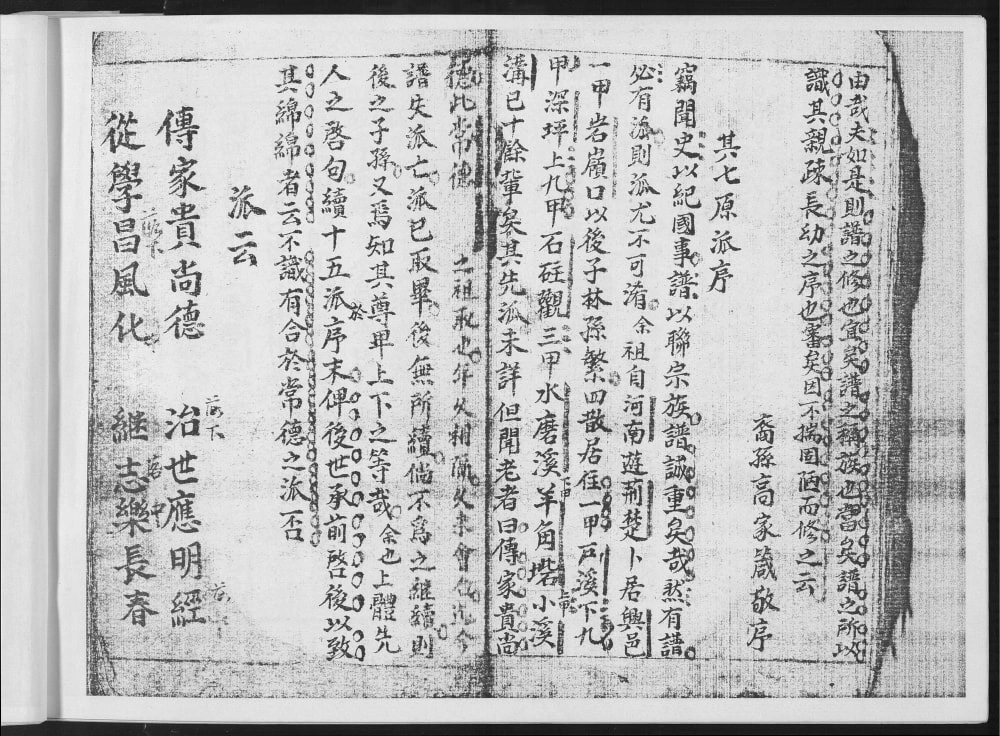 由哉夫如是則譜之修也宜矣譜之稱族也當矣譜之所以
識其親疎長幼之序也審矣因不揣固陋而修之云
裔孫高家箴敬序
其七原派序
竊聞史以紀國事譜以聯宗族譜誠重矣哉然有譜
必有派則派尤不可淆余祖自河南遊荊楚卜居興邑
一甲岩嶺口以後子林孫繁四散居住一甲戸溪下九
甲深坪上九甲石砫觀三甲水磨溪下甲羊角塔上甲小溪
溝已十餘輩矣其先派未詳但聞老者曰傳家貴尚
德比常德之祖取之年久相隔久未會
譜失派亡派已取畢後無所續倘不爲之継續則
後之子孫又焉知其尊卑上下之等哉余也上體先
人之啓句續十五派序於末俾後世承前啓後以致
其綿綿者云不識有合於常德之派否
派云
傳家貴尚德 治世應明經
從學昌風化 継志樂長春